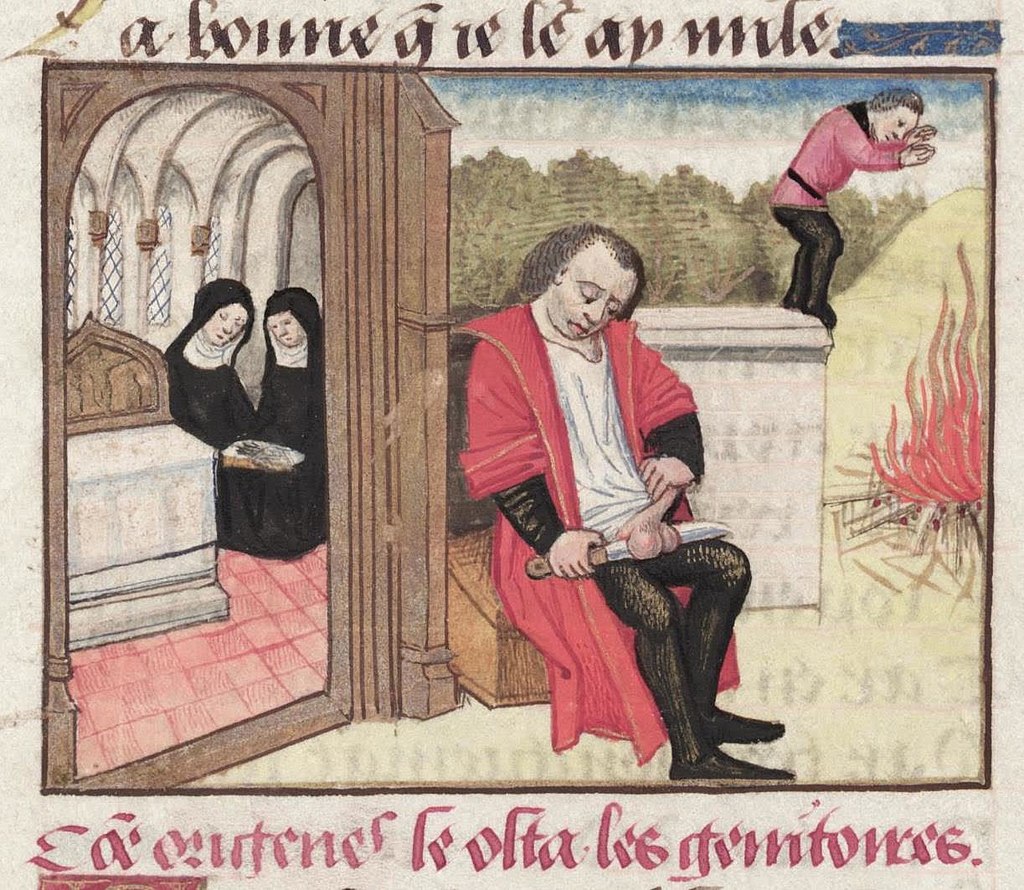 a bonne q̃ ie le ay mise
Cõe origenes se osta les genitoires.